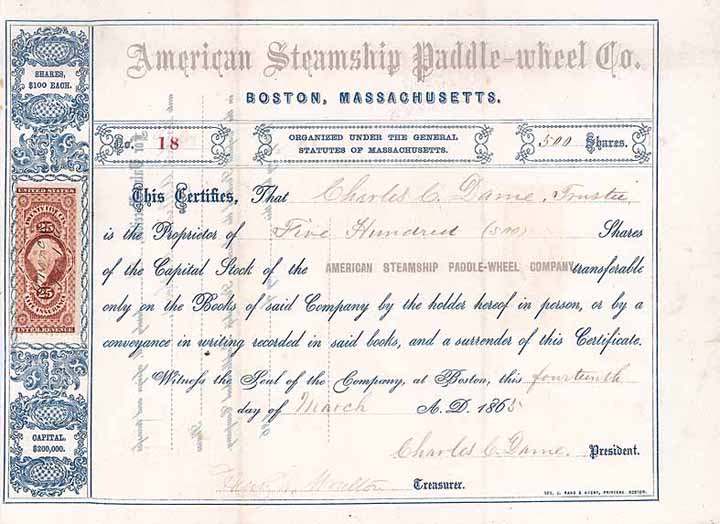 American Steamship Paddle-wheel Co.
BOSTON, MASSACHUSETTS.
SHARES,
$100 EACH.
No. 18
ORGANIZED UNDER THE GENERAL
STATUTES OF MASSACHUSETTS.
500 Shares.
This Certifies, That Charles C. Dame, Trustee
is the Proprietor of Five Hundred (500) Shares
of the Capital Stock of the AMERICAN STEAMSHIP PADDLE-WHEEL COMPANY transferable
only on the Books of said Company by the holder hereof in person, or by a
conveyance in writing recorded in said books, and a surrender of this Certificate.
Witness the Seal of the Company, at Boston, this fourteenth
day of March A. D. 1865
Charles C. Dame. President.
Moulton Treasurer.
UNITED STATES
25
25
INTER. REVENUE
CAPITAL,
$200,000.
GEO. C. RAND & AVERY, PRINTERS, BOSTON.